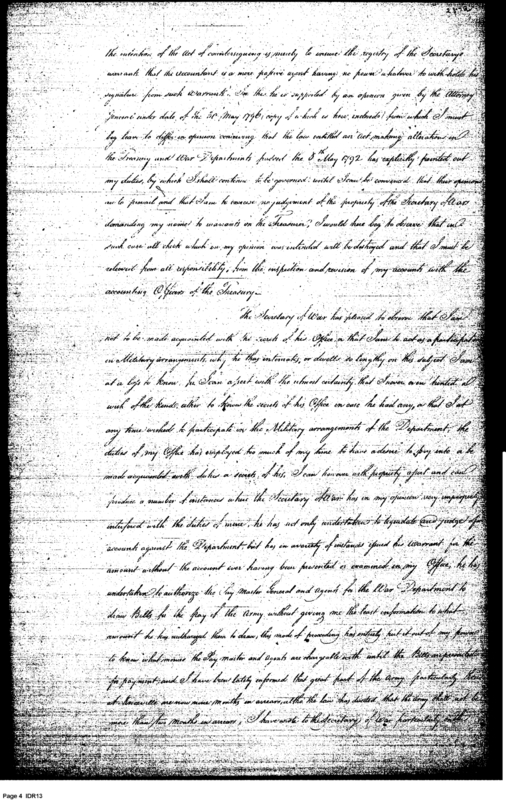 the intention of the Act of countersigning is merely to ensure the registry of the Secretarys
warrants that the accountant is a mere passive agent having no power whatever to withhold his
signature from such warrants. In this he is supported by an opinion given by the Attorney
General under date of the 30 May 1796, copy of which is here enclosed; from which I must
beg leave to differ in opinion conceiving that the law entitled an Act, making alteration in
the Treasury and War Departments passed the 8th May 1792 has explicitly pointed out
my duties, by which I shall continue to be governed: until I can be convinced that their opinions
is to prevail and that I am to exercise no judgement of the propriety of the Secretary of War
demanding my name to warrants on the Treasurer; I would here beg to observe that in
such case all check which in my opinion was intended will be destroyed and that I must be
relieved from all responsibility, from the inspection and revision of my accounts with the
accounting Officers of the Treasury.
The Secretary of War has pleased to observe that I am
not to be made acquainted with the secrets of his Office, or that I am to act as a participator
in Military arrangements, why he thus intimates, or dwells so lengthy on this subject I am
at a loss to know, for I can assert with the utmost certainty that I never even hinted a
wish of the kind, either to know the secrets of his Office in case he had any, or that I at
any time wished to participate in the Military arrangements of the Department; the
duties of my Office has employed too much of my time to have a desire to pry into or be
made acquainted with duties or secrets of his, I can however with propriety assert and can
produce a number of instances where the Secretary of War has in my opinion very improperly
interfered with the duties of mine; he has not only undertaken to liquidate and judge of
accounts against the Department but has in a variety of instances issued his warrant for the
amount without the account ever having been presented or examined in my Office, he has
undertaken to authorize the Pay Master General and agents for the War Department to
draw Bills for the pay of the Army without giving me the least information to what
amount he has authorized them to draw, this mode of proceeding has entirely put it out of my power
to know what monies the Pay master and agents are chargeable with until the Bills are presented
for payment, and I have been lately informed that great part of the Army particularly those
at are now nine months in arrears, altho the law has decided, that the Army shall not be
more than two months in arrears; I have wrote to the Secretary of War particularly
Page 4 IDR13